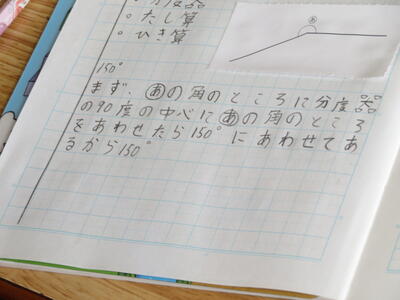 ・分度器
・たし算
・ひき算
あ
150°
まず、あの角のところに分度器
の90度の中心にあの角のところ
をあわせたら150°にあわせてあ
るから150°